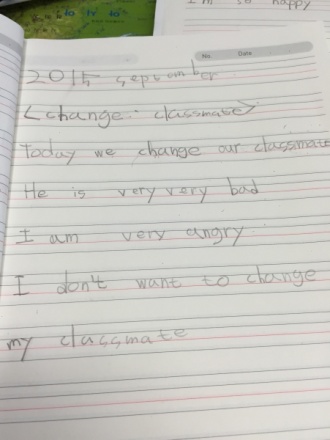 to tv to
I'm so happy
No. Date
2015 september
<change: classmate>
Today we change our classmate
He is very very bad
I am very angry
I don't want to change
my classmate